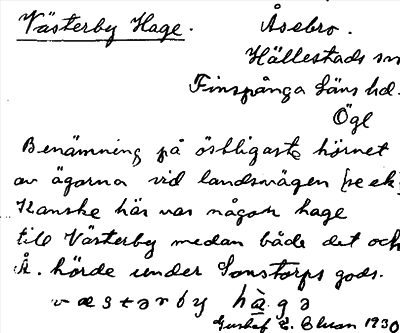 Västerby Hage. Åsebro.
Hällestads sn
Finspånga läns hd.
Ögl
Benämning på östligaste hörnet
av ägorna vid landsvägen [se ek]
Kanske här var någon hage
till Västerby medan både det och
Å. hörde under Sonstorps gods.
væstərby hàgə
Gustaf E. 1930